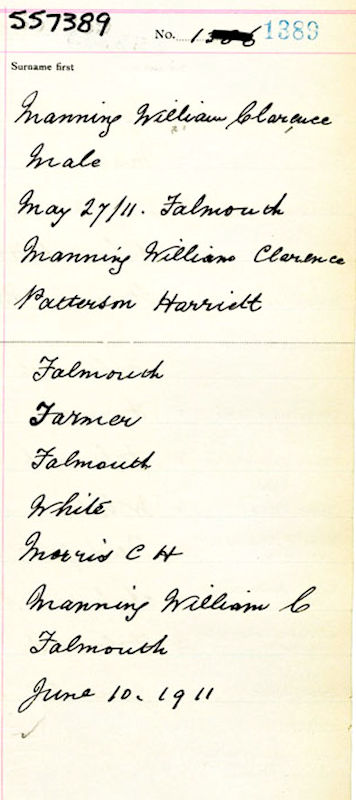 557389
No. 1389
Surname first
Manning William Clarence
Male
May 27/11. Falmouth
Manning William Clarence
Patterson Harriett
Falmouth
Farmer
Falmouth
White
Morris C H
Manning William C
Falmouth
June 10. 1911